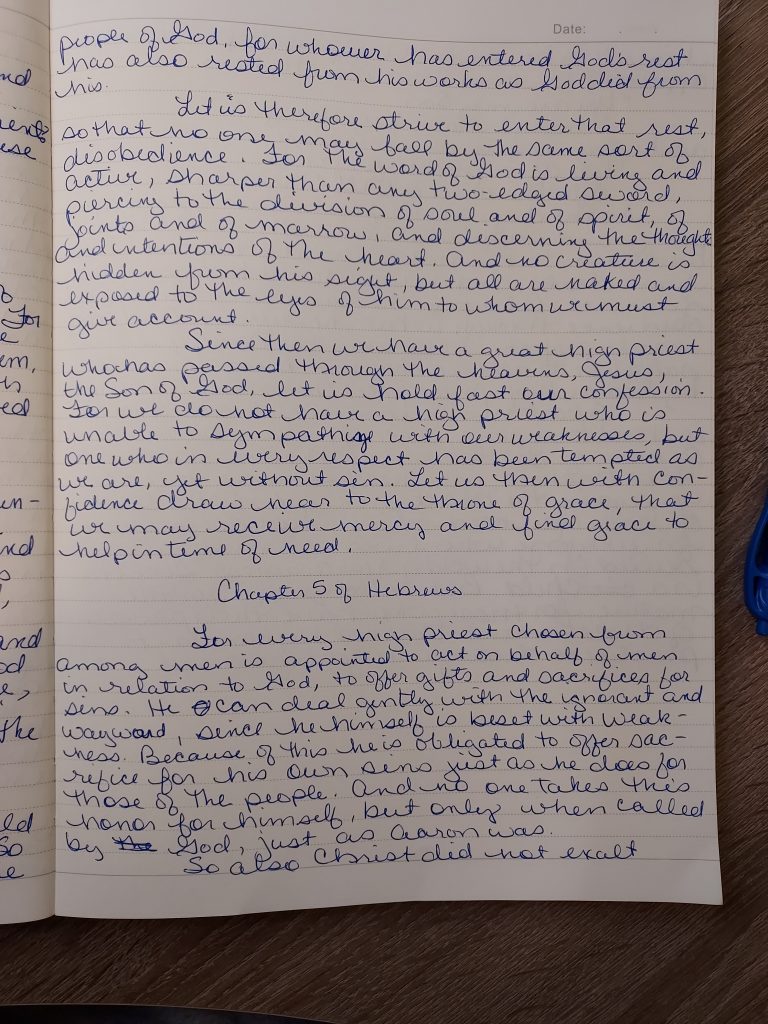 Date:
people of God, for whoever has entered God's rest
has also rested from his works as God did from
his.
Let us therefore strive to enter that rest,
so that no one may fall by the same sort of
disobedience. For the word of God is living and
active, sharper than any two-edged sword,
piercing to the division of soul and of spirit, of
joints and of marrow, and discerning the thoughts
and intentions of the heart. And no creature is
hidden from his sight, but all are naked and
exposed to the eyes of him to whom we must
give account.
Since then we have a great high priest
who has passed through the heavens, Jesus,
the Son of God, let us hold fast our confession.
For we do not have a high priest who is
unable to sympathise with our weaknesses, but
one who in every respect has been tempted as
we are, yet without sin. Let us then with con-
fidence draw near to the throne of grace, that
we may receive mercy and find grace to
help in time of need.
Chapter 5 of Hebrews
For every high priest chosen from
among men is appointed to act on behalf of men
in relation to God, to offer gifts and sacrifices for
sins. He can deal gently with the ignorant and
wayward, since he himself is beset with weak-
ness. Because of this he is obligated to offer sac-
refice for his own sins just as he does for
those of the people. And no one takes this
honor for himself, but only when called
by the God, just as Aaron was.
So also Christ did not exalt